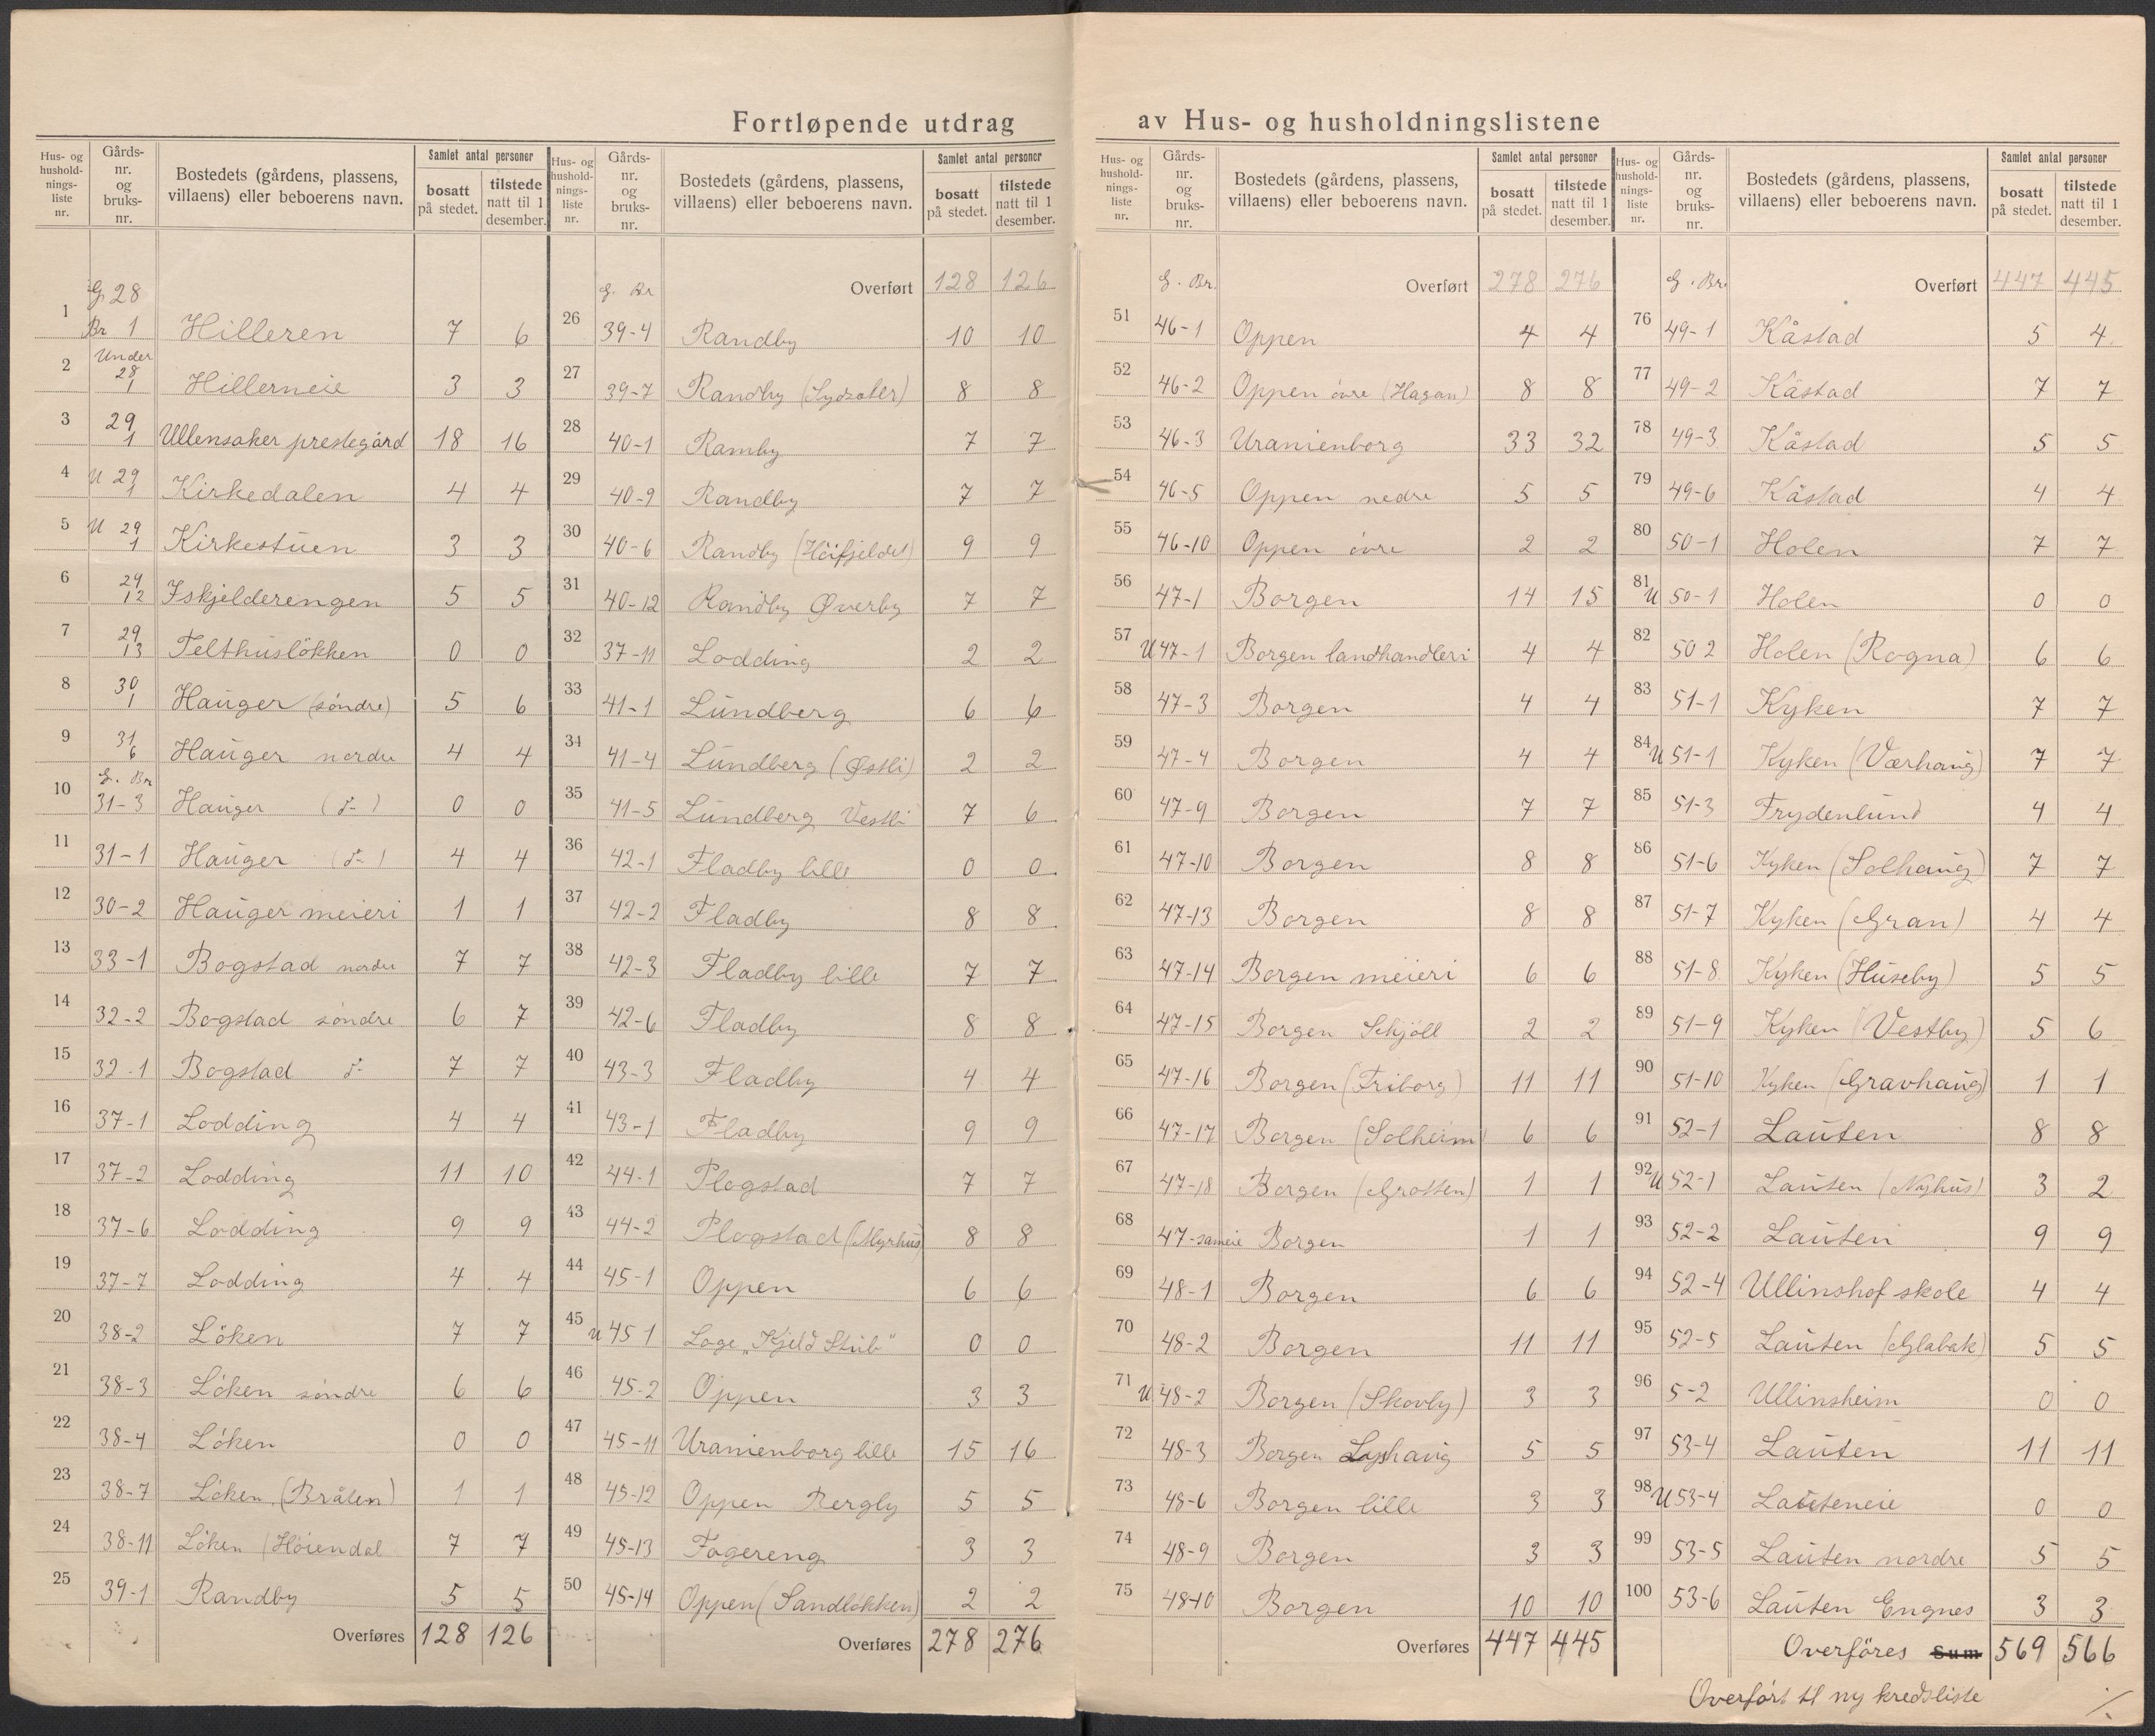 Fortløpende utdrag av Hus- og husholdningslistene
Hus- og hushold-nings-liste nr. Gårds-nr. og bruks-nr. Bostedets (gårdens, plassens, villaens) eller beboerens navn. Samlet antal personer bosatt på stedet. tilstede natt til 1 desember.
1 G 28 Br 1 Hilleren 7 6
2 Under 28 1 Hillerneie 3 3
3 29 1 Ullensaker prestegård 18 16
4 U 29 1 Kirkedalen 4 4
5 U 29 1 Kirkestuen 3 3
6 29 12 Iskjelderengen 5 5
7 29 13 Telthusløkken 0 0
8 30 1 Hauger (søndre) 5 6
9 31 6 Hauger nordre 4 4
10 G. Br 31-3 Hauger ( d- ) 0 0
11 31-1 Hauger ( d- ) 4 4
12 30-2 Hauger meieri 1 1
13 33-1 Bogstad nordre 7 7
14 32-2 Bogstad søndre 6 7
15 32-1 Bogstad d- 7 7
16 37-1 Lodding 4 4
17 37-2 Lodding 11 10
18 37-6 Lodding 9 9
19 37-7 Lodding 4 4
20 38-2 Löken 7 7
21 38-3 Löken söndre 6 6
22 38-4 Löken 0 0
23 38-7 Löken (Bråten) 1 1
24 38-11 Löken (Høiendal 7 7
25 39-1 Randby 5 5
Overføres 128 126
Hus- og hushold-nings-liste nr. Gårds-nr. og bruks-nr. Bostedets (gårdens, plassens, villaens) eller beboerens navn. Samlet antal personer bosatt på stedet. tilstede natt til 1 desember.
G. Br Overført 128 126
26 39-4 Randby 10 10
27 39-7 Randby (Sydsæter) 8 8
28 40-1 Ramby 7 7
29 40-9 Randby 7 7
30 40-6 Randby (Höifjeldet) 9 9
31 40-12 Randby Øverby 7 7
32 37-11 Lodding 2 2
33 41-1 Lundberg 6 6
34 41-4 Lundberg (Østli) 2 2
35 41-5 Lundberg Vestli 7 6
36 42-1 Fladby lille 0 0
37 42-2 Fladby 8 8
38 42-3 Fladby lille 7 7
39 42-6 Fladby 8 8
40 43-3 Fladby 4 4
41 43-1 Fladby 9 9
42 44-1 Plogstad 7 7
43 44-2 Plogstad (Myrhus) 8 8
44 45-1 Oppen 6 6
45 U 45 1 Loge "Kjeld Stub" 0 0
46 45-2 Oppen 3 3
47 45-11 Uranienborg lille 15 16
48 45-12 Oppen Bergly 5 5
49 45-13 Fagereng 3 3
50 45-14 Oppen (Sandløkken) 2 2
Overføres 278 276
Hus- og hushold-nings-liste nr. Gårds-nr. og bruks-nr. Bostedets (gårdens, plassens, villaens) eller beboerens navn. Samlet antal personer bosatt på stedet. tilstede natt til 1 desember.
G. Br. Overført 278 276
51 46-1 Oppen 4 4
52 46-2 Oppen övre (Hagan) 8 8
53 46-3 Uranienborg 33 32
54 46-5 Oppen nedre 5 5
55 46-10 Oppen övre 2 2
56 47-1 Borgen 14 15
57 U 47-1 Borgen landhandleri 4 4
58 47-3 Borgen 4 4
59 47-4 Borgen 4 4
60 47-9 Borgen 7 7
61 47-10 Borgen 8 8
62 47-13 Borgen 8 8
63 47-14 Borgen meieri 6 6
64 47-15 Borgen Schjöll 2 2
65 47-16 Borgen (Friborg) 11 11
66 47-17 Borgen (Solheim) 6 6
67 47-18 Borgen (Grotten) 1 1
68 47-sameie Borgen 1 1
69 48-1 Borgen 6 6
70 48-2 Borgen 11 11
71 U 48-2 Borgen (Skovly) 3 3
72 48-3 Borgen Lyshaug 5 5
73 48-6 Borgen lille 3 3
74 48-9 Borgen 3 3
75 48-10 Borgen 10 10
Overføres 447 445
Hus- og hushold-nings-liste nr. Gårds-nr. og bruks-nr. Bostedets (gårdens, plassens, villaens) eller beboerens navn. Samlet antal personer bosatt på stedet. tilstede natt til 1 desember.
G. Br. Overført 447 445
76 49-1 Kåstad 5 4
77 49-2 Kåstad 7 7
78 49-3 Kåstad 5 5
79 49-6 Kåstad 4 4
80 50-1 Holen 7 7
81 U 50-1 Holen 0 0
82 50 2 Holen (Rogna) 6 6
83 51-1 Kyken 7 7
84 U 51-1 Kyken (Værhaug) 7 7
85 51-3 Frydenlund 4 4
86 51-6 Kyken (Solhaug) 7 7
87 51-7 Kyken (Gran) 4 4
88 51-8 Kyken (Huseby) 5 5
89 51-9 Kyken (Vestby) 5 6
90 51-10 Kyken (Gravhaug) 1 1
91 52-1 Lauten 8 8
92 U 52-1 Lauten (Nyhus) 3 2
93 52-2 Lauten 9 9
94 52-4 Ullinshof skole 4 4
95 52-5 Lauten (Glabak) 5 5
96 5-2 Ullinsheim 0 0
97 53-4 Lauten 11 11
98 U 53-4 Lauteneie 0 0
99 53-5 Lauten nordre 5 5
100 53-6 Lauten Engnes 3 3
Overföres Sum 569 566
Overført til ny kredsliste ./.